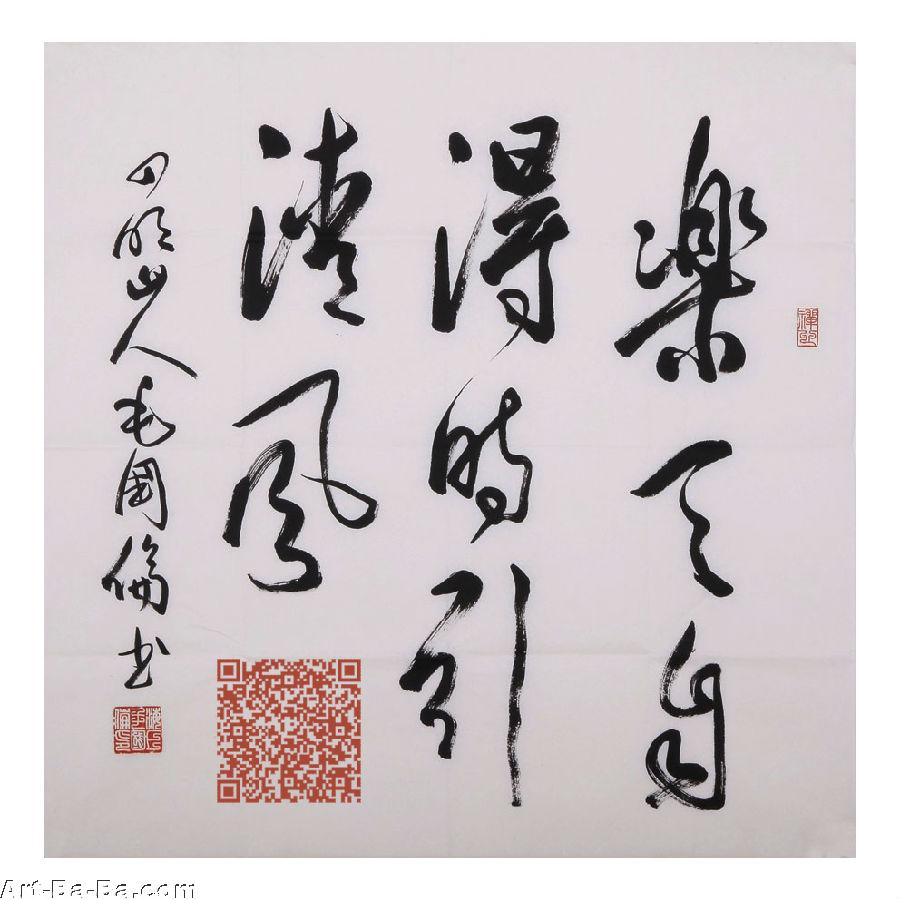 樂天自
得時引
清風
四明山人毛國倫书
Art-Ba-Ba.com